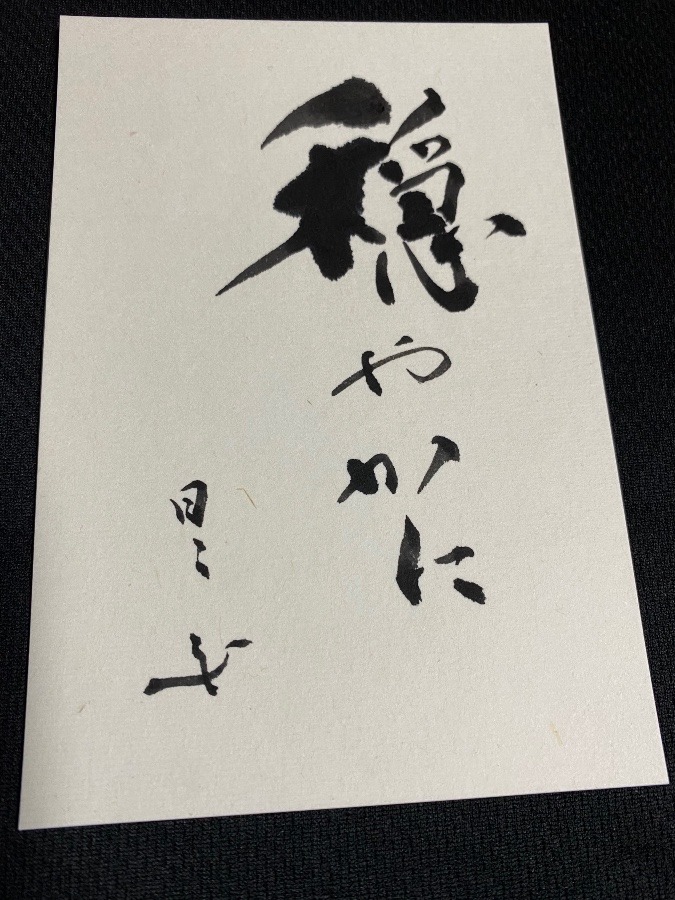 穏やかに
日々